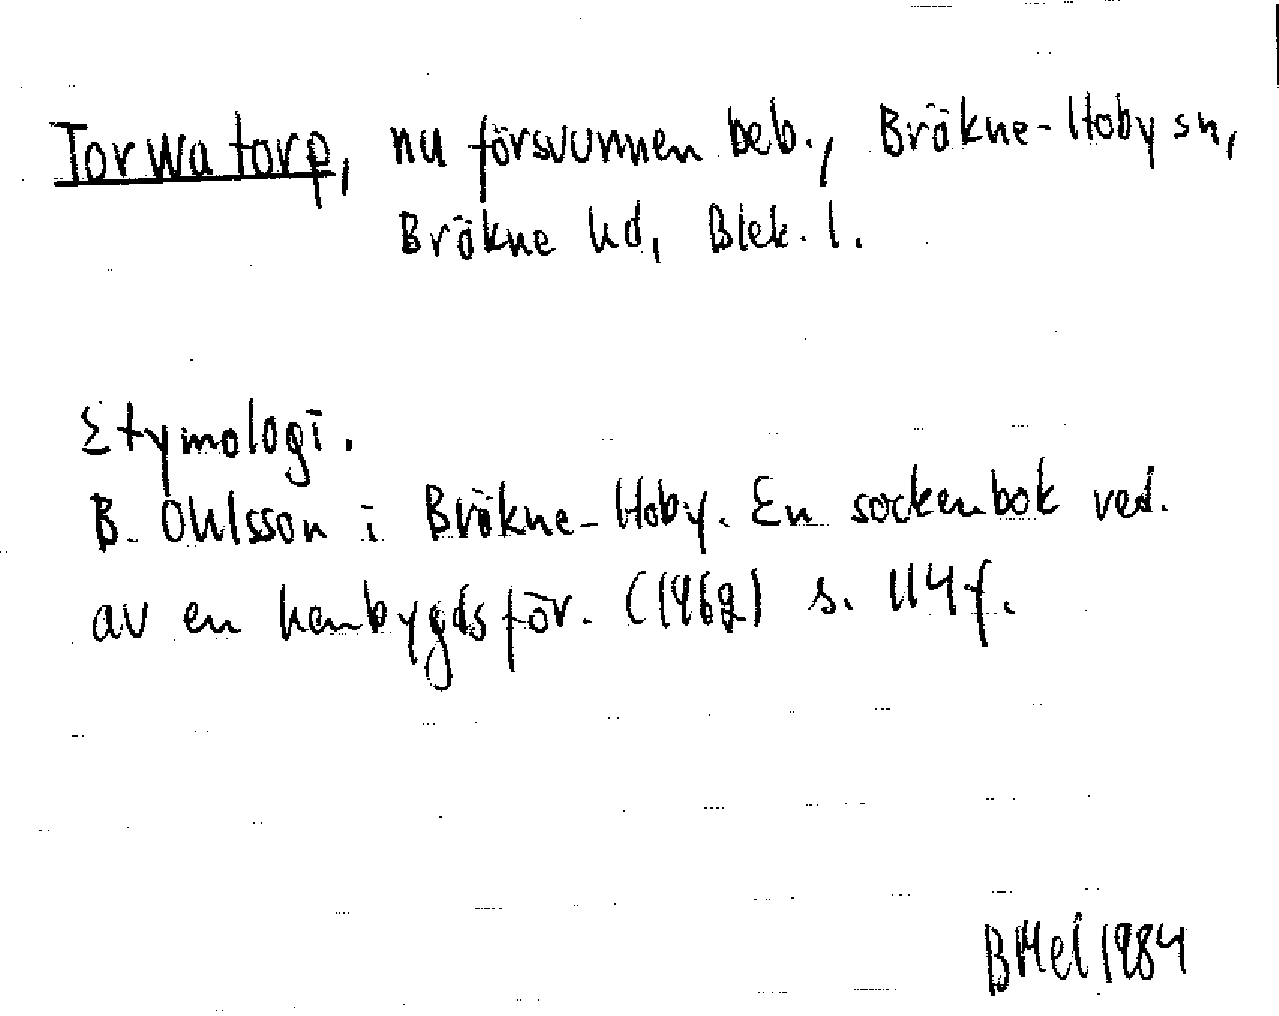 Torwa torp, nu försvunnen beb., Bräkne-Hoby sn,
Bräkne hd, Blek. l.
Etymologi.
B. Ohlsson i Bräkne-Hoby. En sockenbok red.
av en hembygdsför. (1962) s. 114 f.
BMel 1984